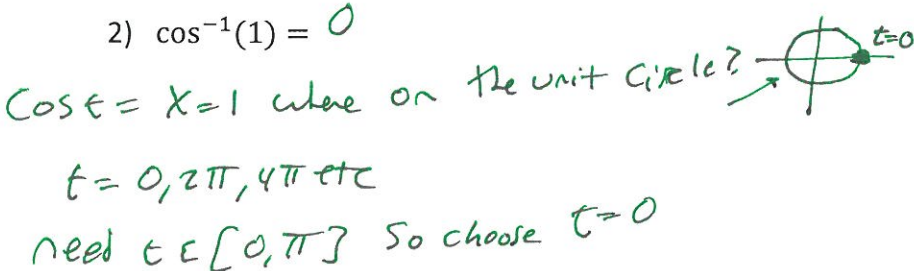 2) cos⁻¹(1) = 0
t=0
Cos t = X = 1 where on the unit Circle?
t = 0, 2π, 4π etc
need t ε [0, π] So choose t = 0